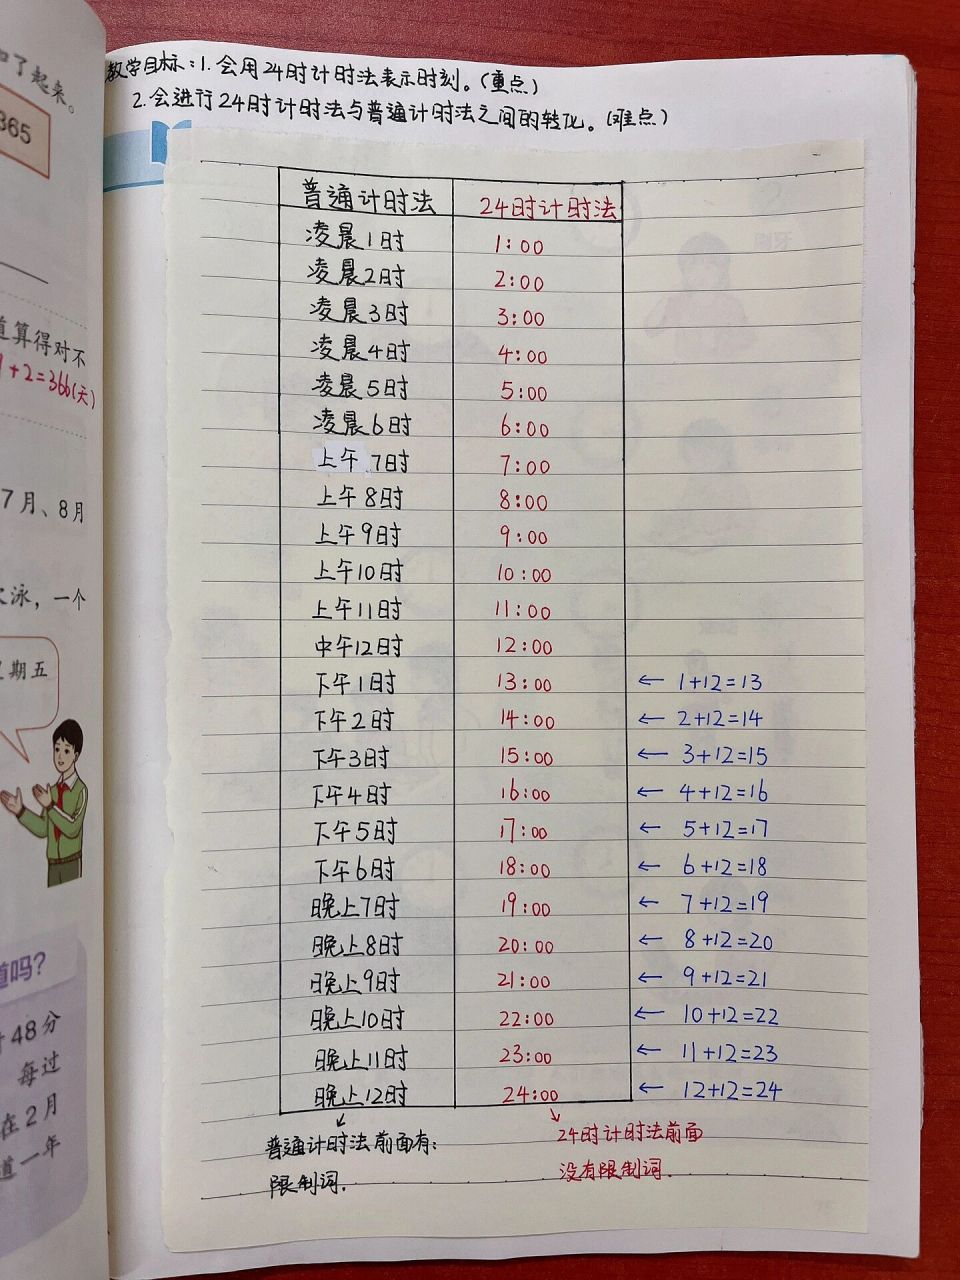 教学目标:1.会用24时计时法表示时刻。(重点)
2.会进行24时计时法与普通计时法之间的转化。(难点)
普通计时法 24时计时法
凌晨1时 1:00
凌晨2时 2:00
凌晨3时 3:00
凌晨4时 4:00
凌晨5时 5:00
凌晨6时 6:00
上午7时 7:00
上午8时 8:00
上午9时 9:00
上午10时 10:00
上午11时 11:00
中午12时 12:00
下午1时 13:00 ← 1+12=13
下午2时 14:00 ← 2+12=14
下午3时 15:00 ← 3+12=15
下午4时 16:00 ← 4+12=16
下午5时 17:00 ← 5+12=17
下午6时 18:00 ← 6+12=18
晚上7时 19:00 ← 7+12=19
晚上8时 20:00 ← 8+12=20
晚上9时 21:00 ← 9+12=21
晚上10时 22:00 ← 10+12=22
晚上11时 23:00 ← 11+12=23
晚上12时 24:00 ← 12+12=24
普通计时法前面有:
限制词.
24时计时法前面
没有限制词.
了起来。
365
算得对不
+2=366(天)
7月、8月
泳，一个
期五
吗?
48分
每过
在2月
道一年